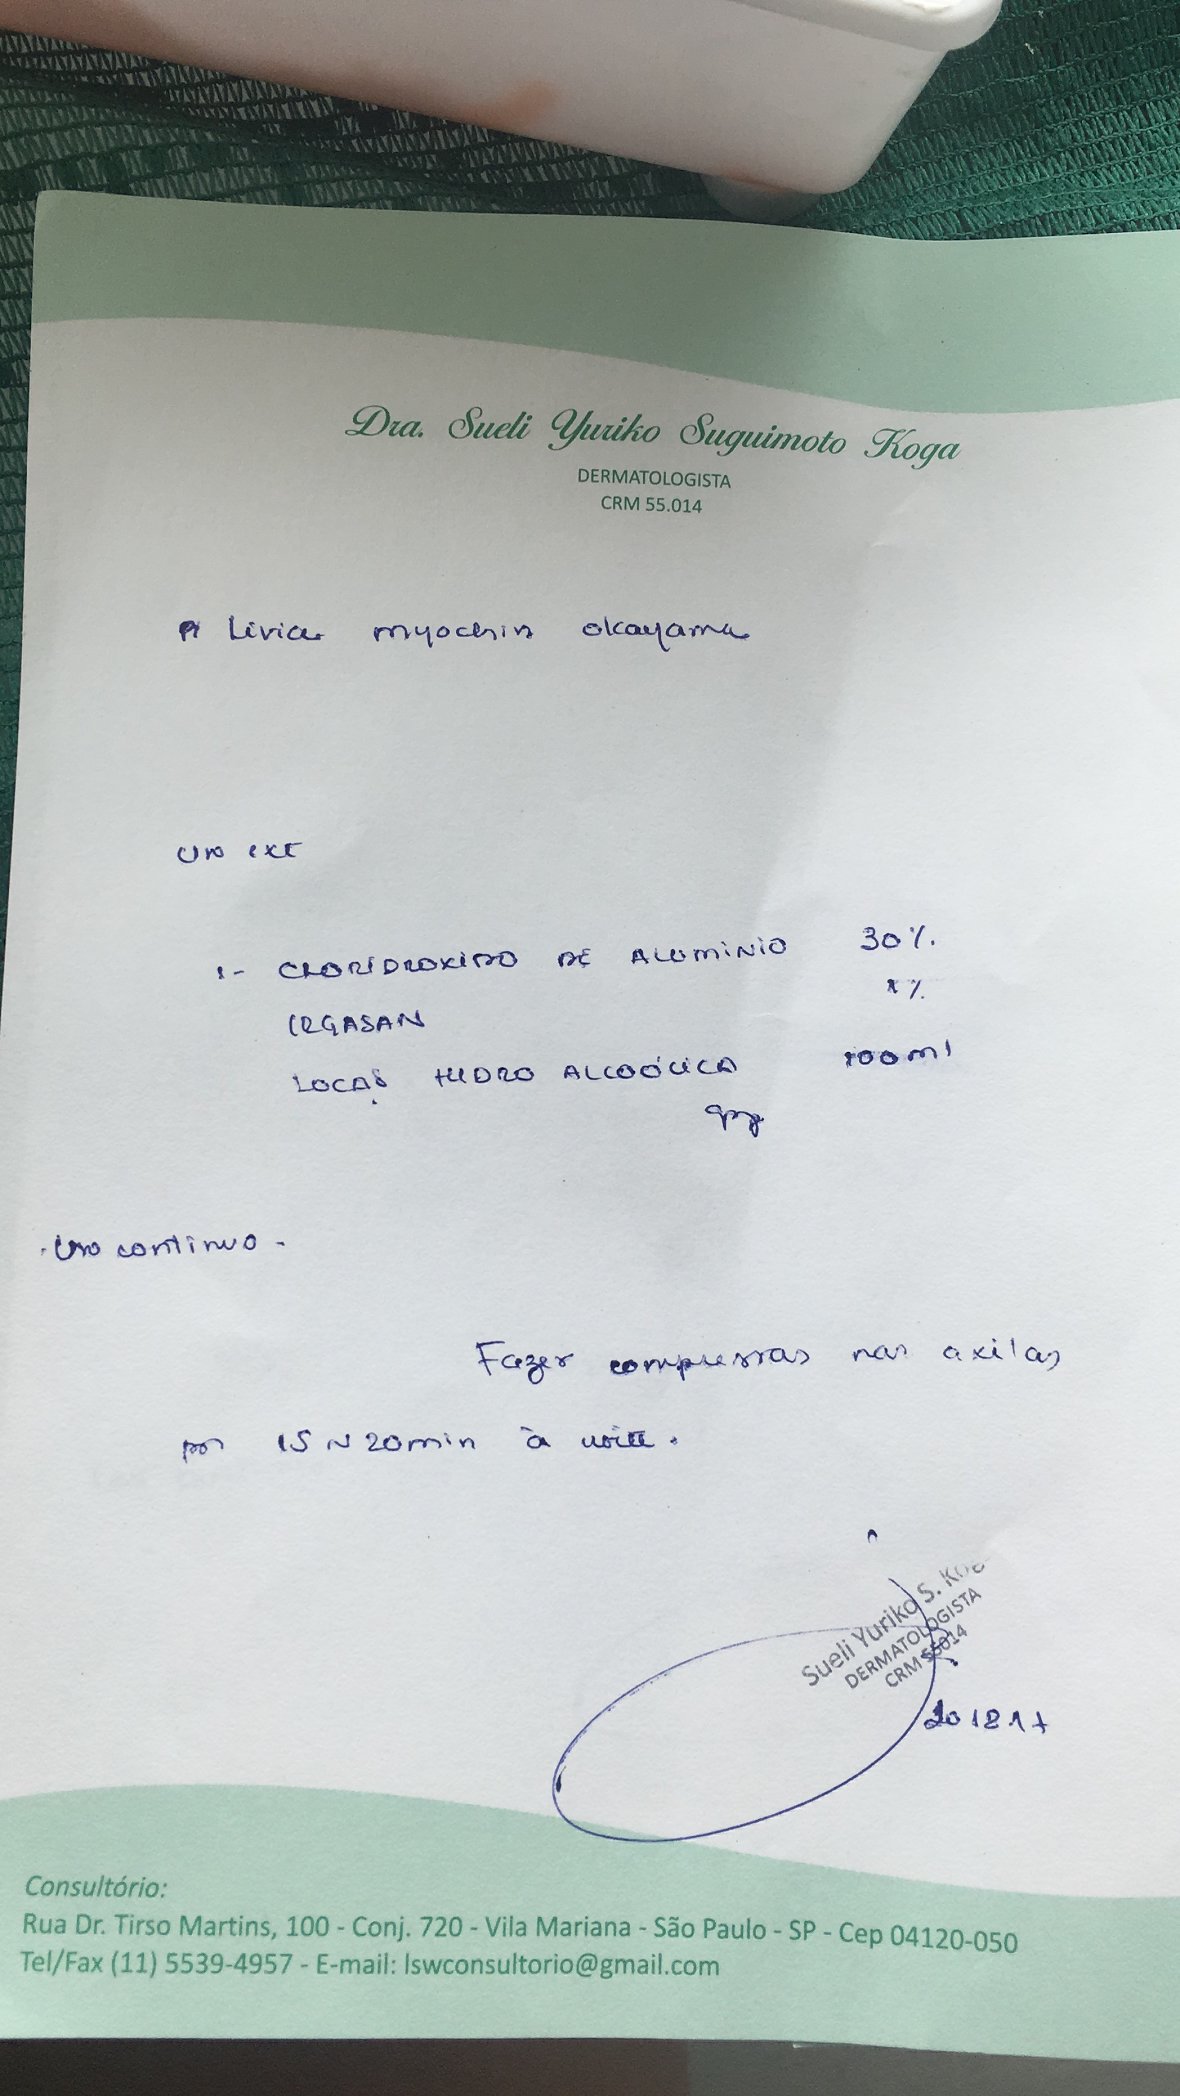 Dra. Sueli Yuriko Suguimoto Koga
DERMATOLOGISTA
CRM 55.014
A Livia myochin okayama
Uso ext
1- CLORIDROXIDO DE ALUMINIO 30%
IRGASAN 1%
LOCAÇÃO HIDRO ALCOÓLICA 100ml
qsp
- Uso continuo -
Fazer compressas nas axilas
por 15 ~ 20min à noite.
Sueli Yuriko S. Kog
DERMATOLOGISTA
CRM 55014
Consultório:
Rua Dr. Tirso Martins, 100 - Conj. 720 - Vila Mariana - São Paulo - SP - Cep 04120-050
Tel/Fax (11) 5539-4957 - E-mail: lswconsultorio@gmail.com